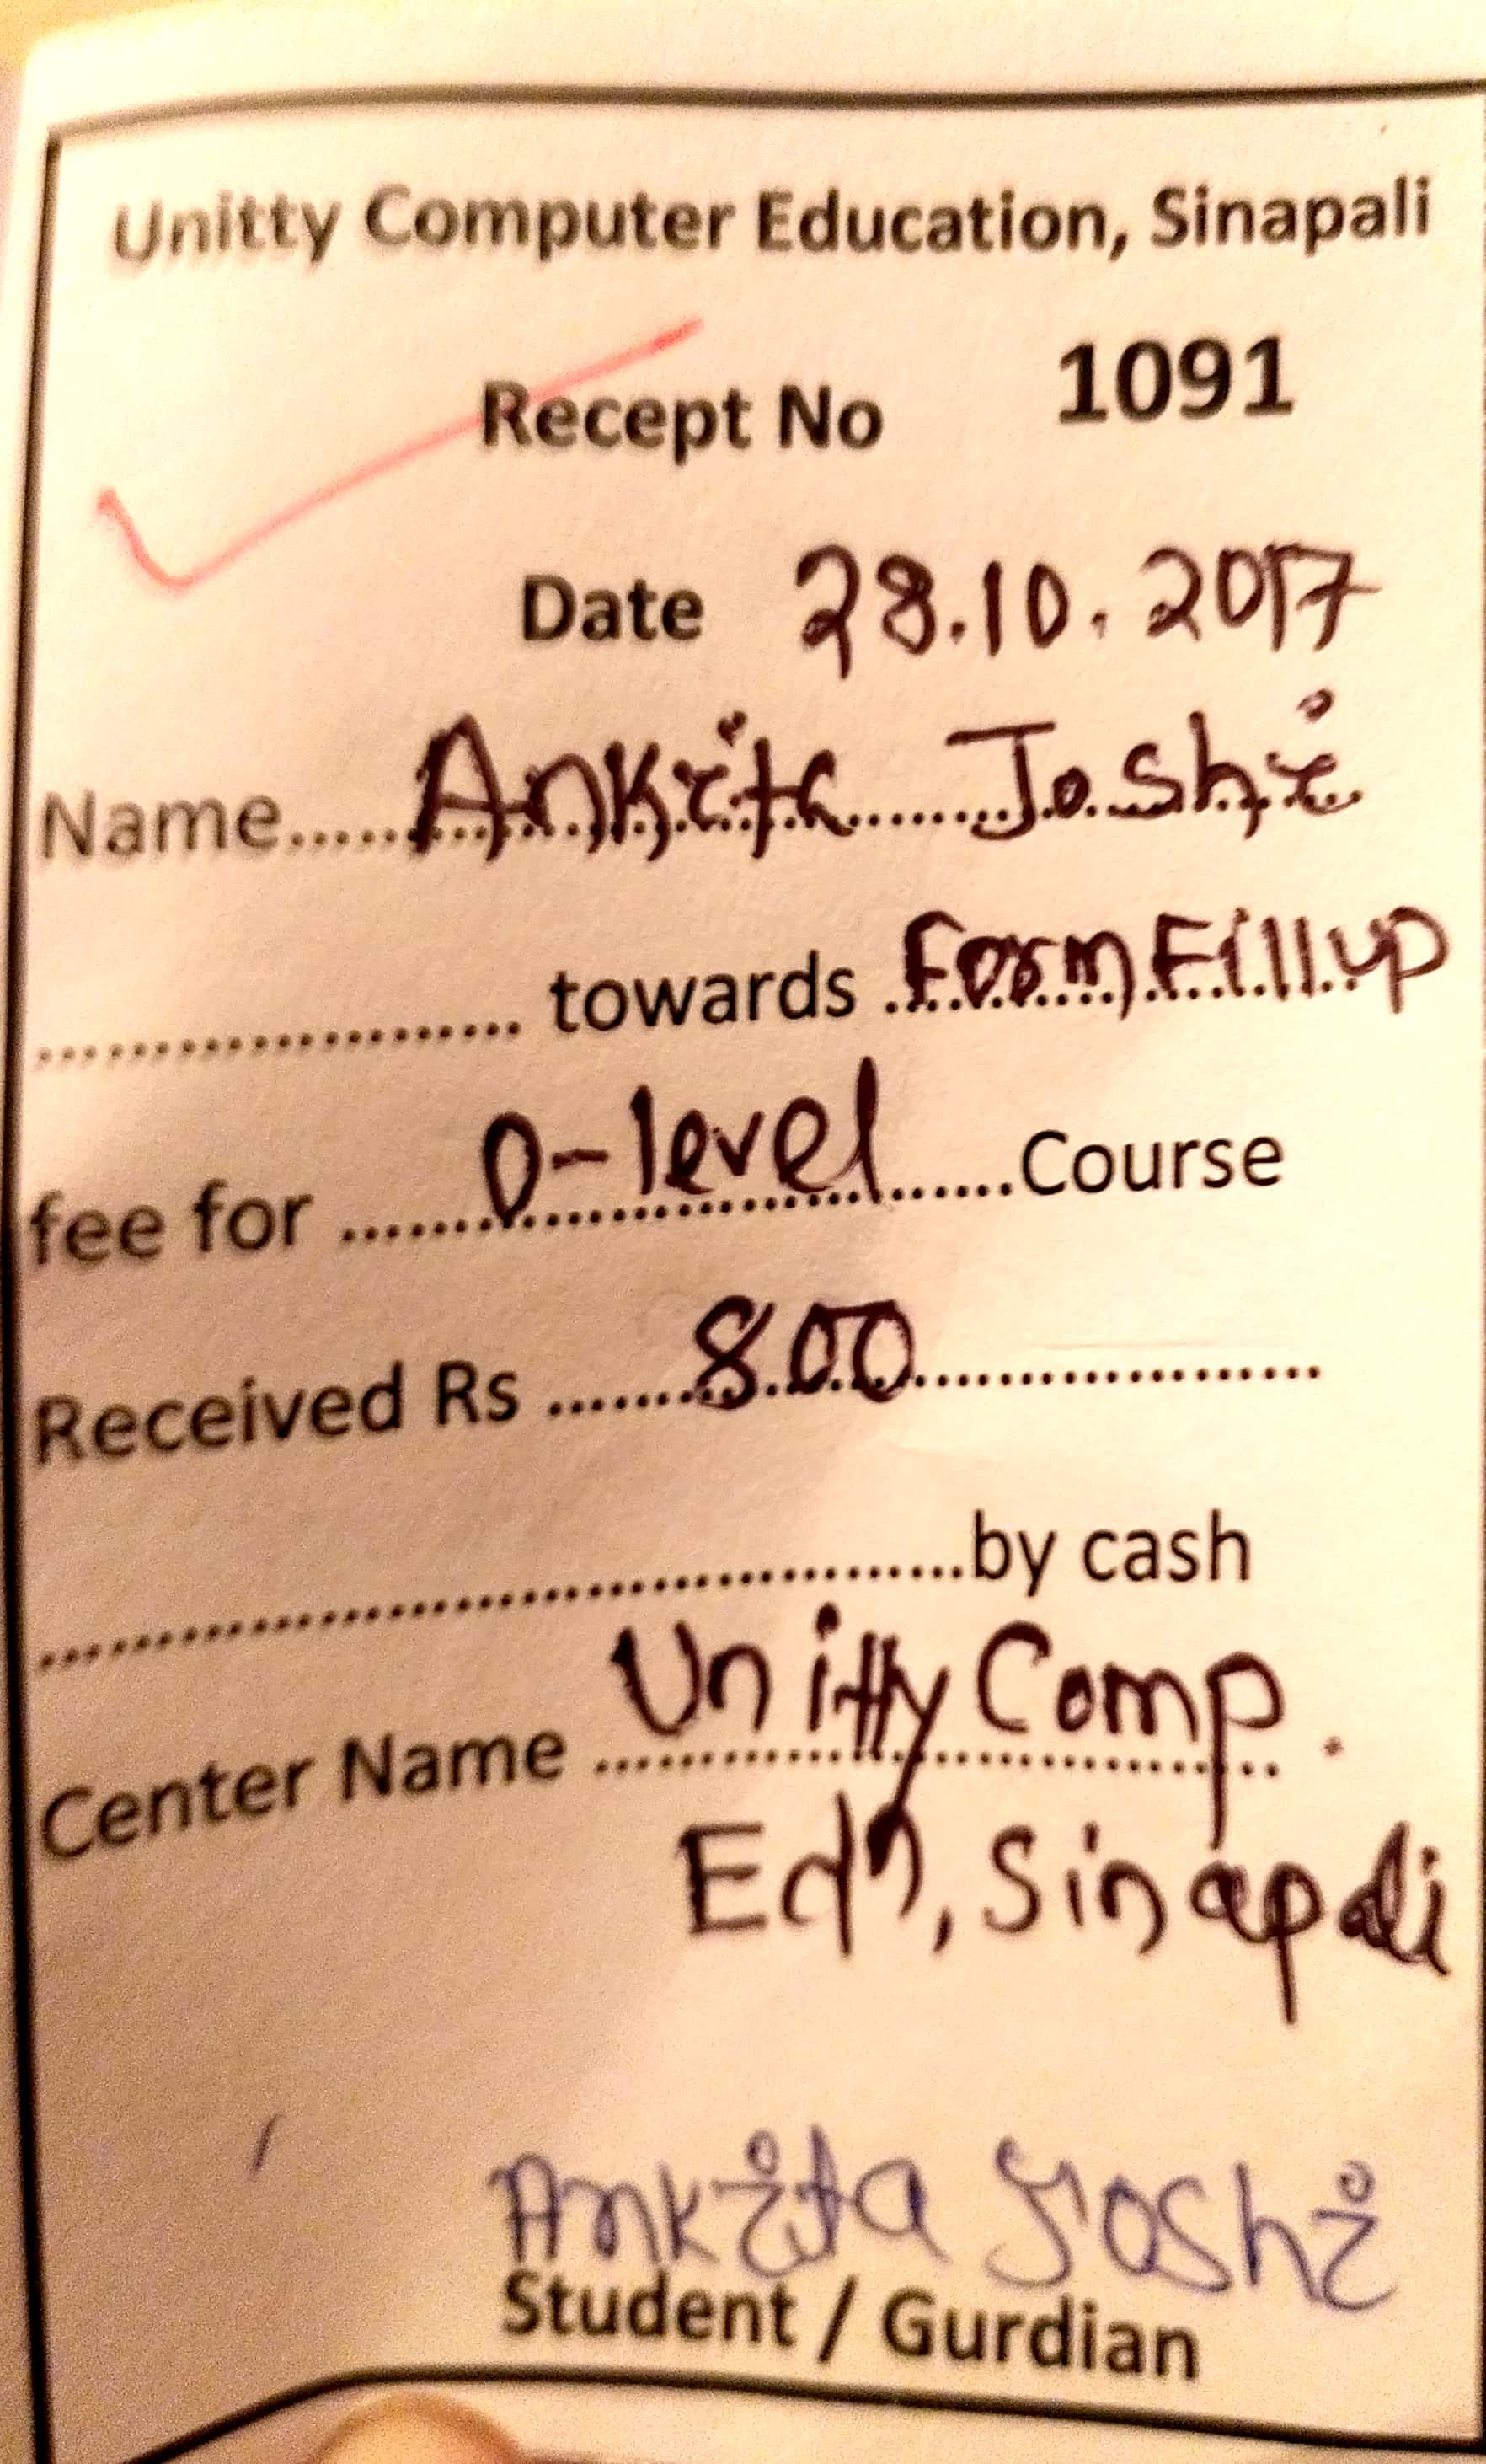 Unitty Computer Education, Sinapali
Recept No 1091
Date 28.10.2017
Name.....Ankita Joshi
.................... towards Form Fillup
fee for ......0-level......Course
Received Rs ......800..................
........................................by cash
Center Name Unitty Comp.
Edn, Sinapali
Ankita Joshi
Student / Gurdian